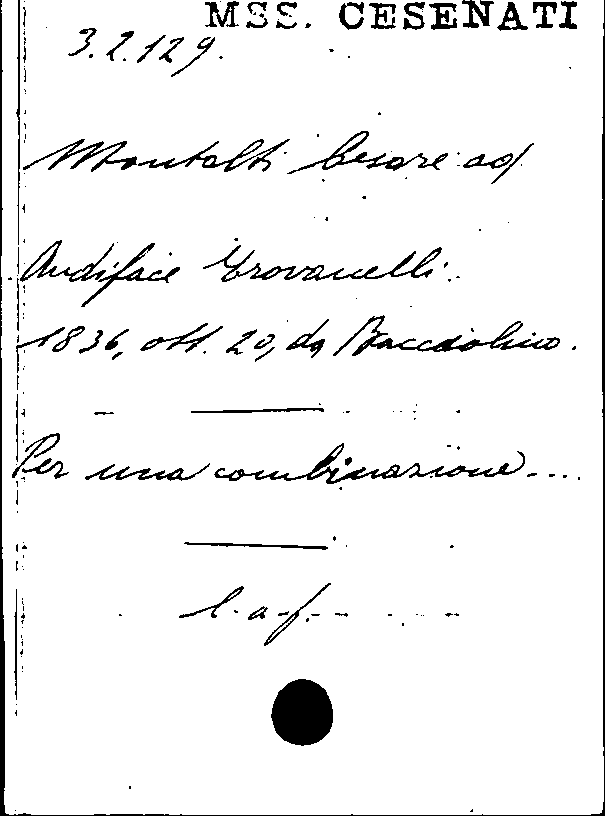 MSS. CESENATI
3.2.129.
Montalti Cesare ad
Audiface Giovanelli.
1836, ott. 20, da Bacciolino.
Per una combinazione....
l. a. f.